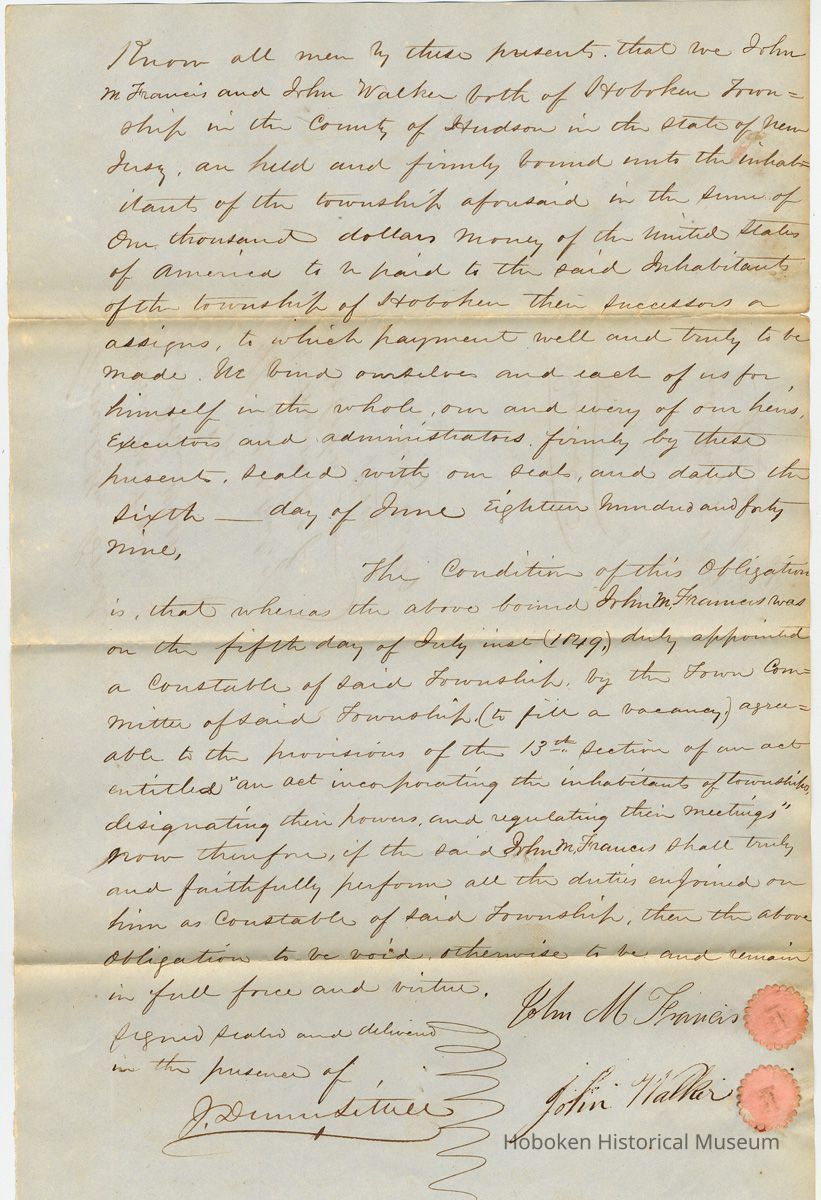 Know all men by these presents. that we John
M Francis and John Walker both of Hoboken Town=
ship in the County of Hudson in the State of New
Jersy, are held and firmly bound unto the inhab=
itants of the township aforesaid in the sum of
One thousand dollars Money of the United States
of America to be paid to the said Inhabitants
of the township of Hoboken their successors or
assigns, to which payment well and truly to be
made. We bind ourselves and each of us for
himself in the whole, our and every of our heirs,
Executors and administrators, firmly by these
presents, sealed with our seals, and dated the
sixth — day of June Eighteen hundred and forty
nine,
The Condition of this Obligation
is, that whereas the above bound John M, Francis was
on the fifth day of July inst (1849,) duly appointed
a Constable of said Township, by the Town Com=
mittee of said Township, (to fill a vacancy,) agree=
able to the provisions of the 13th. section of an act
entitled "an act incorporating the inhabitants of townships,
designating their powers, and regulating their meetings"
now therefore, if the said John M, Francis shall truly
and faithfully perform all the duties enjoined on
him as Constable of said Township, then the above
Obligation to be void, otherwise to be and remain
in full force and virtue.
Signed sealed and delivered
in the presence of
John M Francis
John Walker
Hoboken Historical Museum